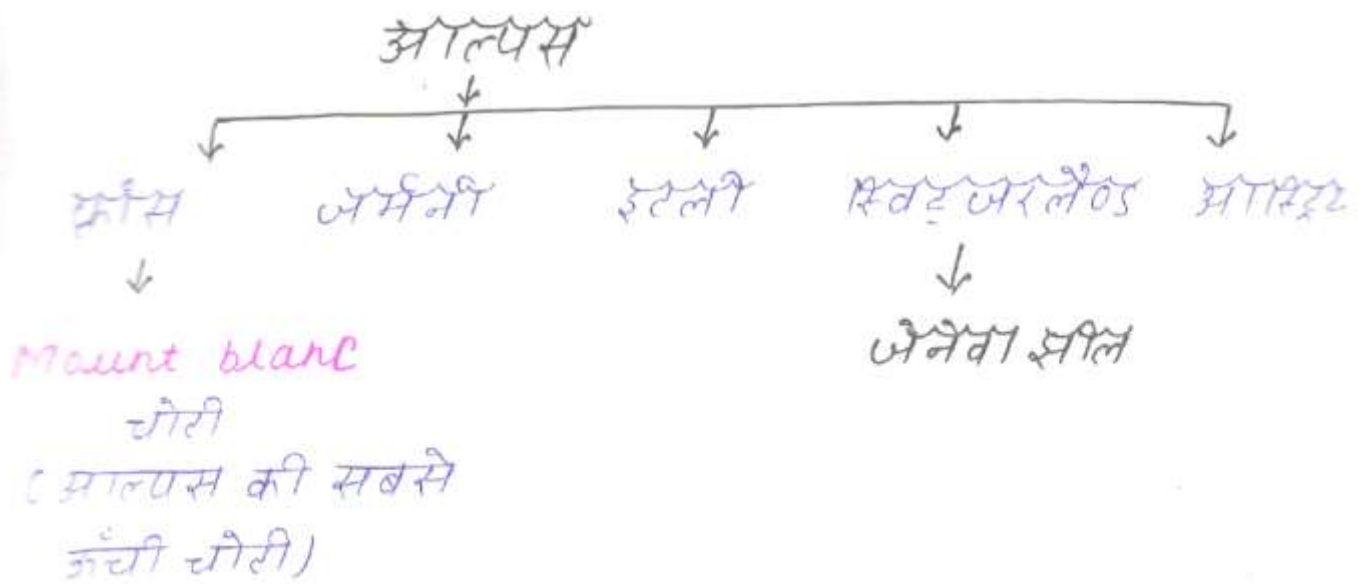 आल्पस
फ्राँस जर्मनी इटली स्विट्जरलैण्ड
जेनेवा झील
Mount blanc
चोटी
(आल्पस की सबसे
ऊँची चोटी)